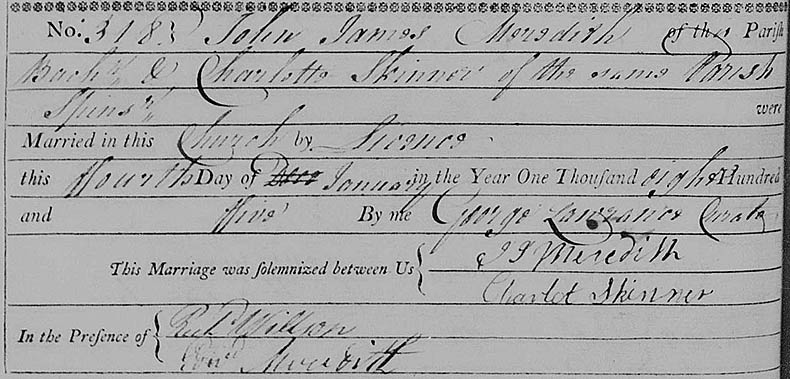 No. 3183 John James Meredith of this Parish
Bachr & Charlotte Skinner of the same Parish
Spinsr were
Married in this Church by Licence
this Fourth Day of January in the Year One Thousand eight Hundred
and Five By me George Lawrance Curate
This Marriage was solemnized between Us { J J Meredith
Charlot Skinner
In the Presence of { Willson
Edwd Meredith